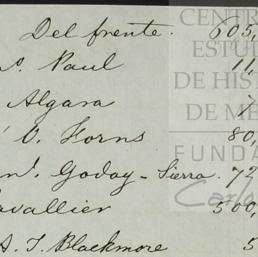 Del frente. 605,
Paul 11,
Algara
O. Forns 80,
Goday - Sierra. 72
avallier 500,
A. J. Blackmore 5
CENTR
ESTU
DE HIS
DE ME
FUNDA
Carlo